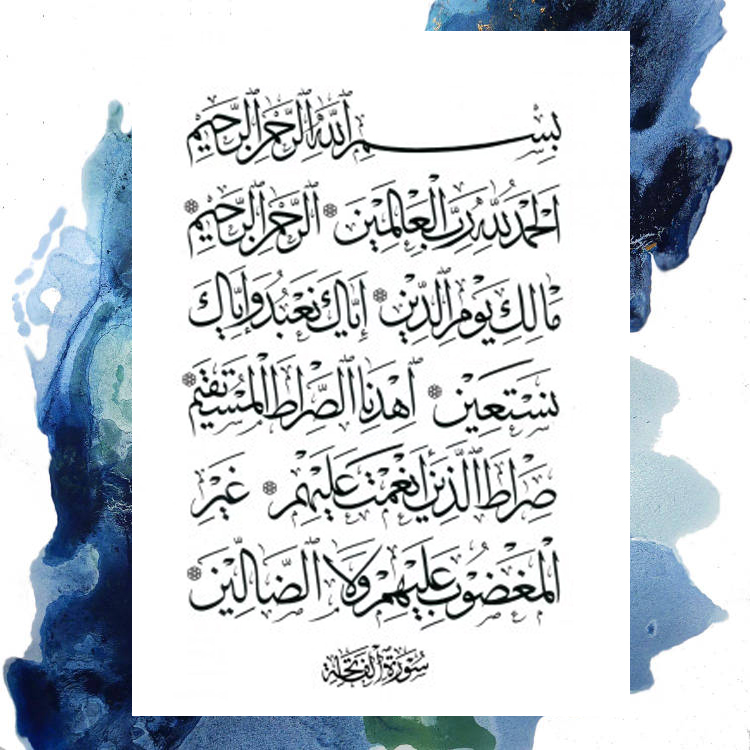 بِسْمِ ٱللَّهِ ٱلرَّحْمٰنِ ٱلرَّحِيمِ
اَلْحَمْدُ لِلَّهِ رَبِّ الْعَالَمِينَ ۞ ٱلرَّحْمٰنِ ٱلرَّحِيمِ ۞
مَالِكِ يَوْمِ ٱلدِّينِ ۞ إِيَّاكَ نَعْبُدُ وَإِيَّاكَ
نَسْتَعِينُ ۞ ٱهْدِنَا ٱلصِّرَاطَ الْمُسْتَقِيمَ ۞
صِرَاطَ ٱلَّذِينَ أَنْعَمْتَ عَلَيْهِمْ ۞ غَيْرِ
الْمَغْضُوبِ عَلَيْهِمْ وَلَا ٱلضَّالِّينَ ۞
سُورَةُ ٱلْفَاتِحَة